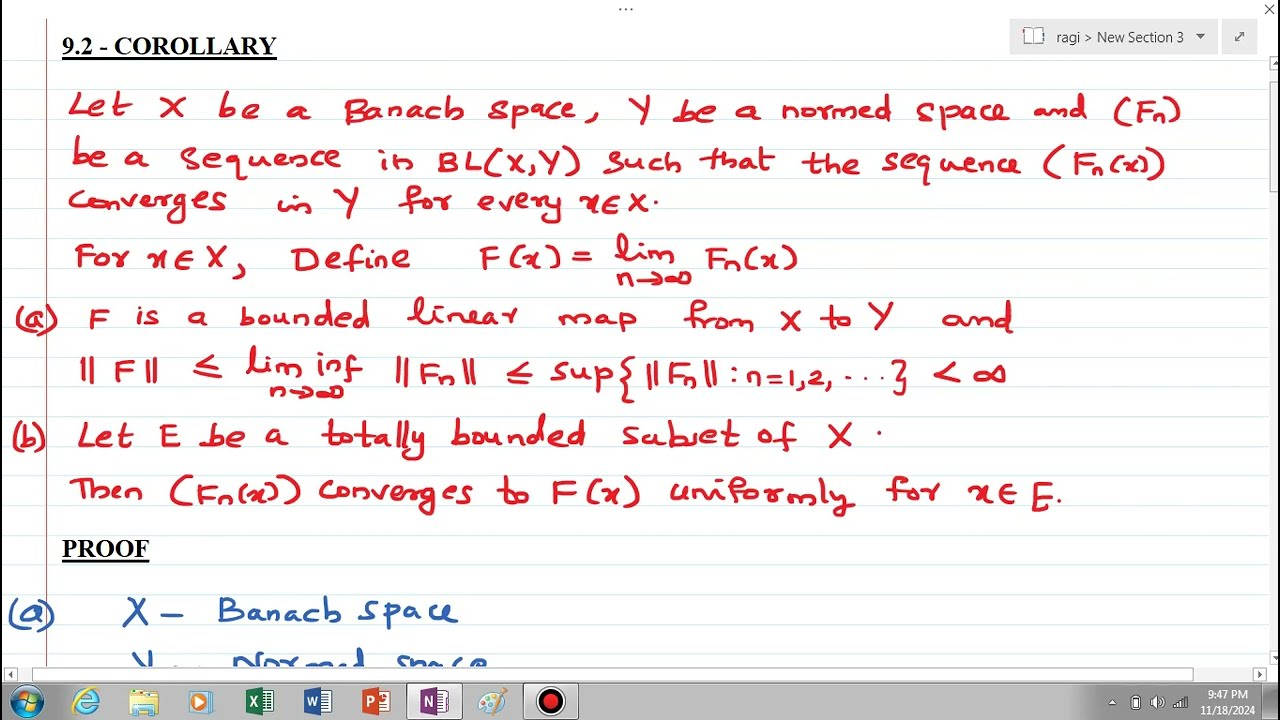 ...
ragi > New Section 3
9.2 - COROLLARY
Let X be a Banach space, Y be a normed space and (Fn)
be a sequence in BL(X,Y) such that the sequence (Fn(x))
converges in Y for every x∈X.
For x∈X, Define F(x) = lim n→∞ Fn(x)
(a) F is a bounded linear map from X to Y and
||F|| ≤ lim inf n→∞ ||Fn|| ≤ sup{||Fn|| : n=1,2, ...} < ∞
(b) Let E be a totally bounded subset of X.
Then (Fn(x)) converges to F(x) uniformly for x∈E.
PROOF
(a) X – Banach space
Y – Normed space
9:47 PM
11/18/2024